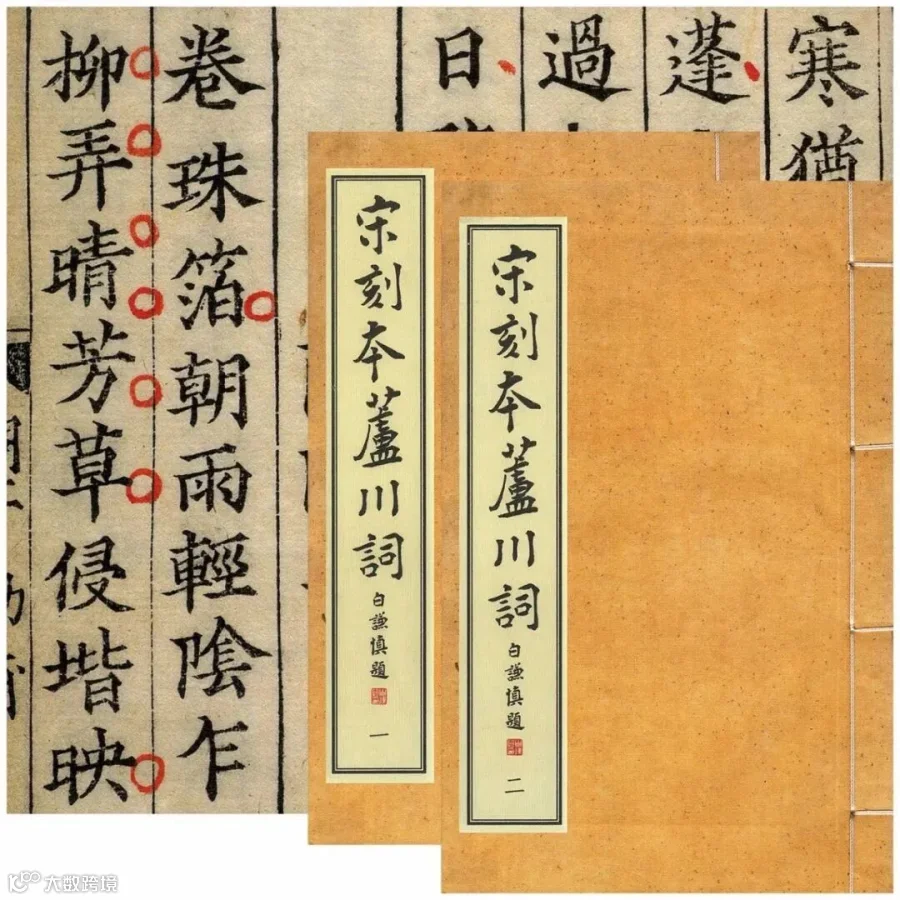 寒猶
蓬
過
日
卷珠箔朝雨輕陰乍
柳弄晴芳草侵堦映
宋刻本蘆川詞
白謙慎題
一
宋刻本蘆川詞
白謙慎題
二
大数跨境